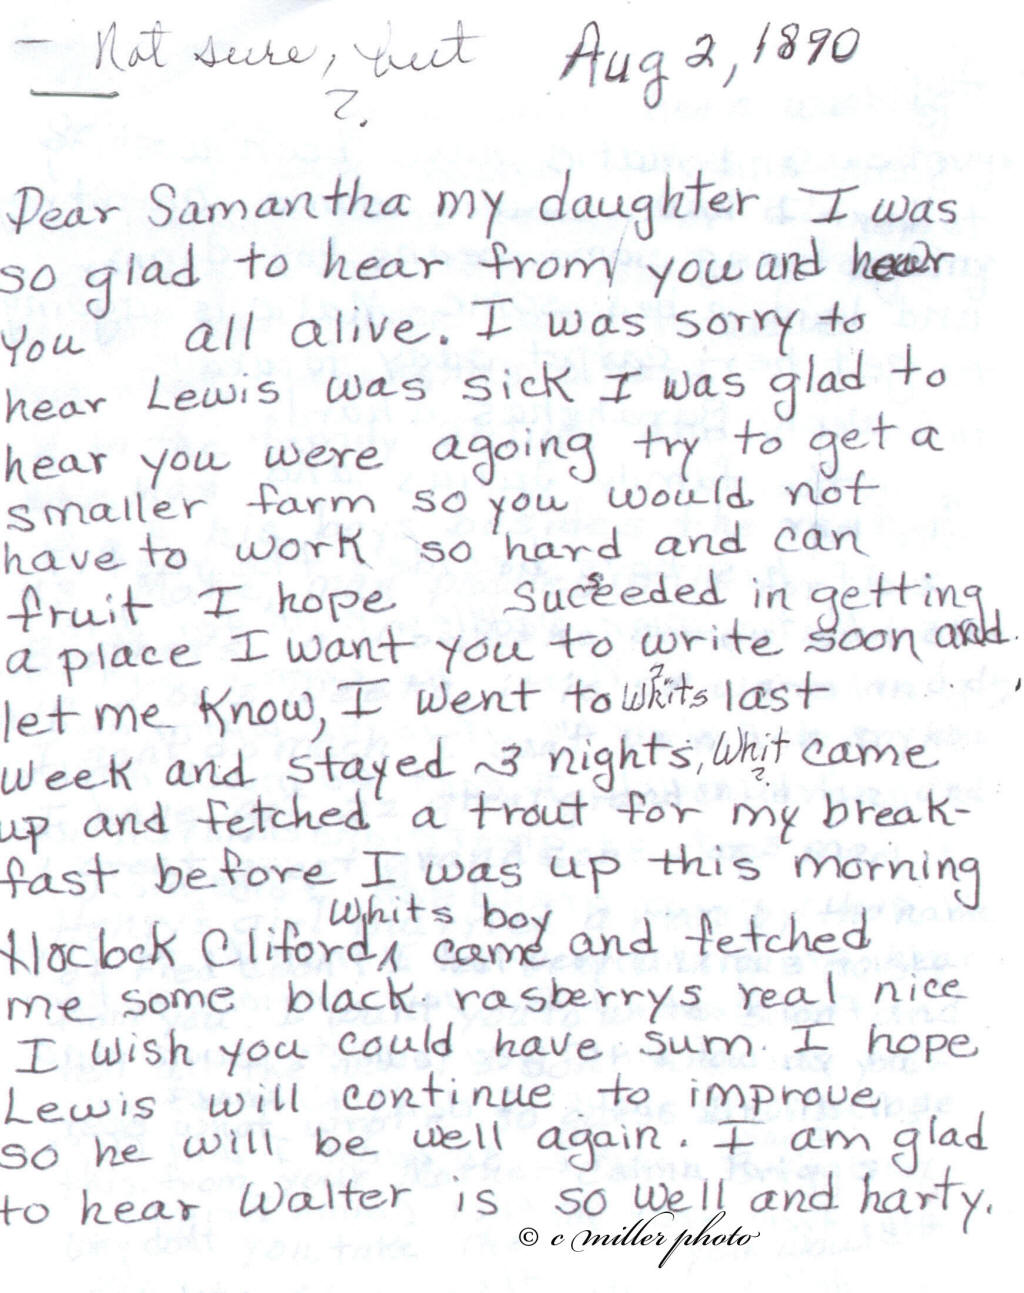 — Not sure, but Aug 2, 1890
?
Dear Samantha my daughter I was
so glad to hear from you and hear
you all alive. I was sorry to
hear Lewis was sick I was glad to
hear you were agoing try to get a
smaller farm so you would not
have to work so hard and can
fruit I hope succeeded in getting
a place I want you to write soon and
let me know, I went to Whits last
?
week and stayed ~3 nights, Whit came
?
up and fetched a trout for my break-
fast before I was up this morning
Whits boy
Cliford, came and fetched
me some black rasberrys real nice
I wish you could have sum. I hope
Lewis will continue to improve
so he will be well again. I am glad
to hear Walter is so well and harty.
© c miller photo